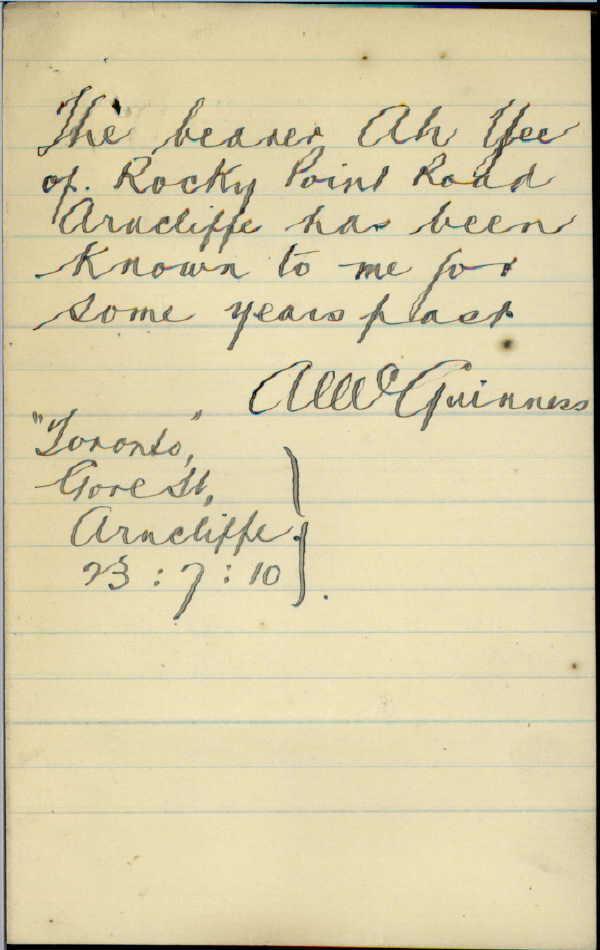 The bearer Ah Yee
of. Rocky Point Road
Arncliffe has been
known to me for
some years past
McGuinness
"Toronto,"
Gore St,
Arncliffe.
23 : 7 : 10